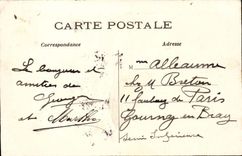 CARTE POSTALE
Correspondance
Adresse
Le bonjour et
amitiés de
Georges
et Marthe
Mme Alleaume
chez M Breton
11 faubourg de Paris
Gournay en Bray
Seine Inférieure